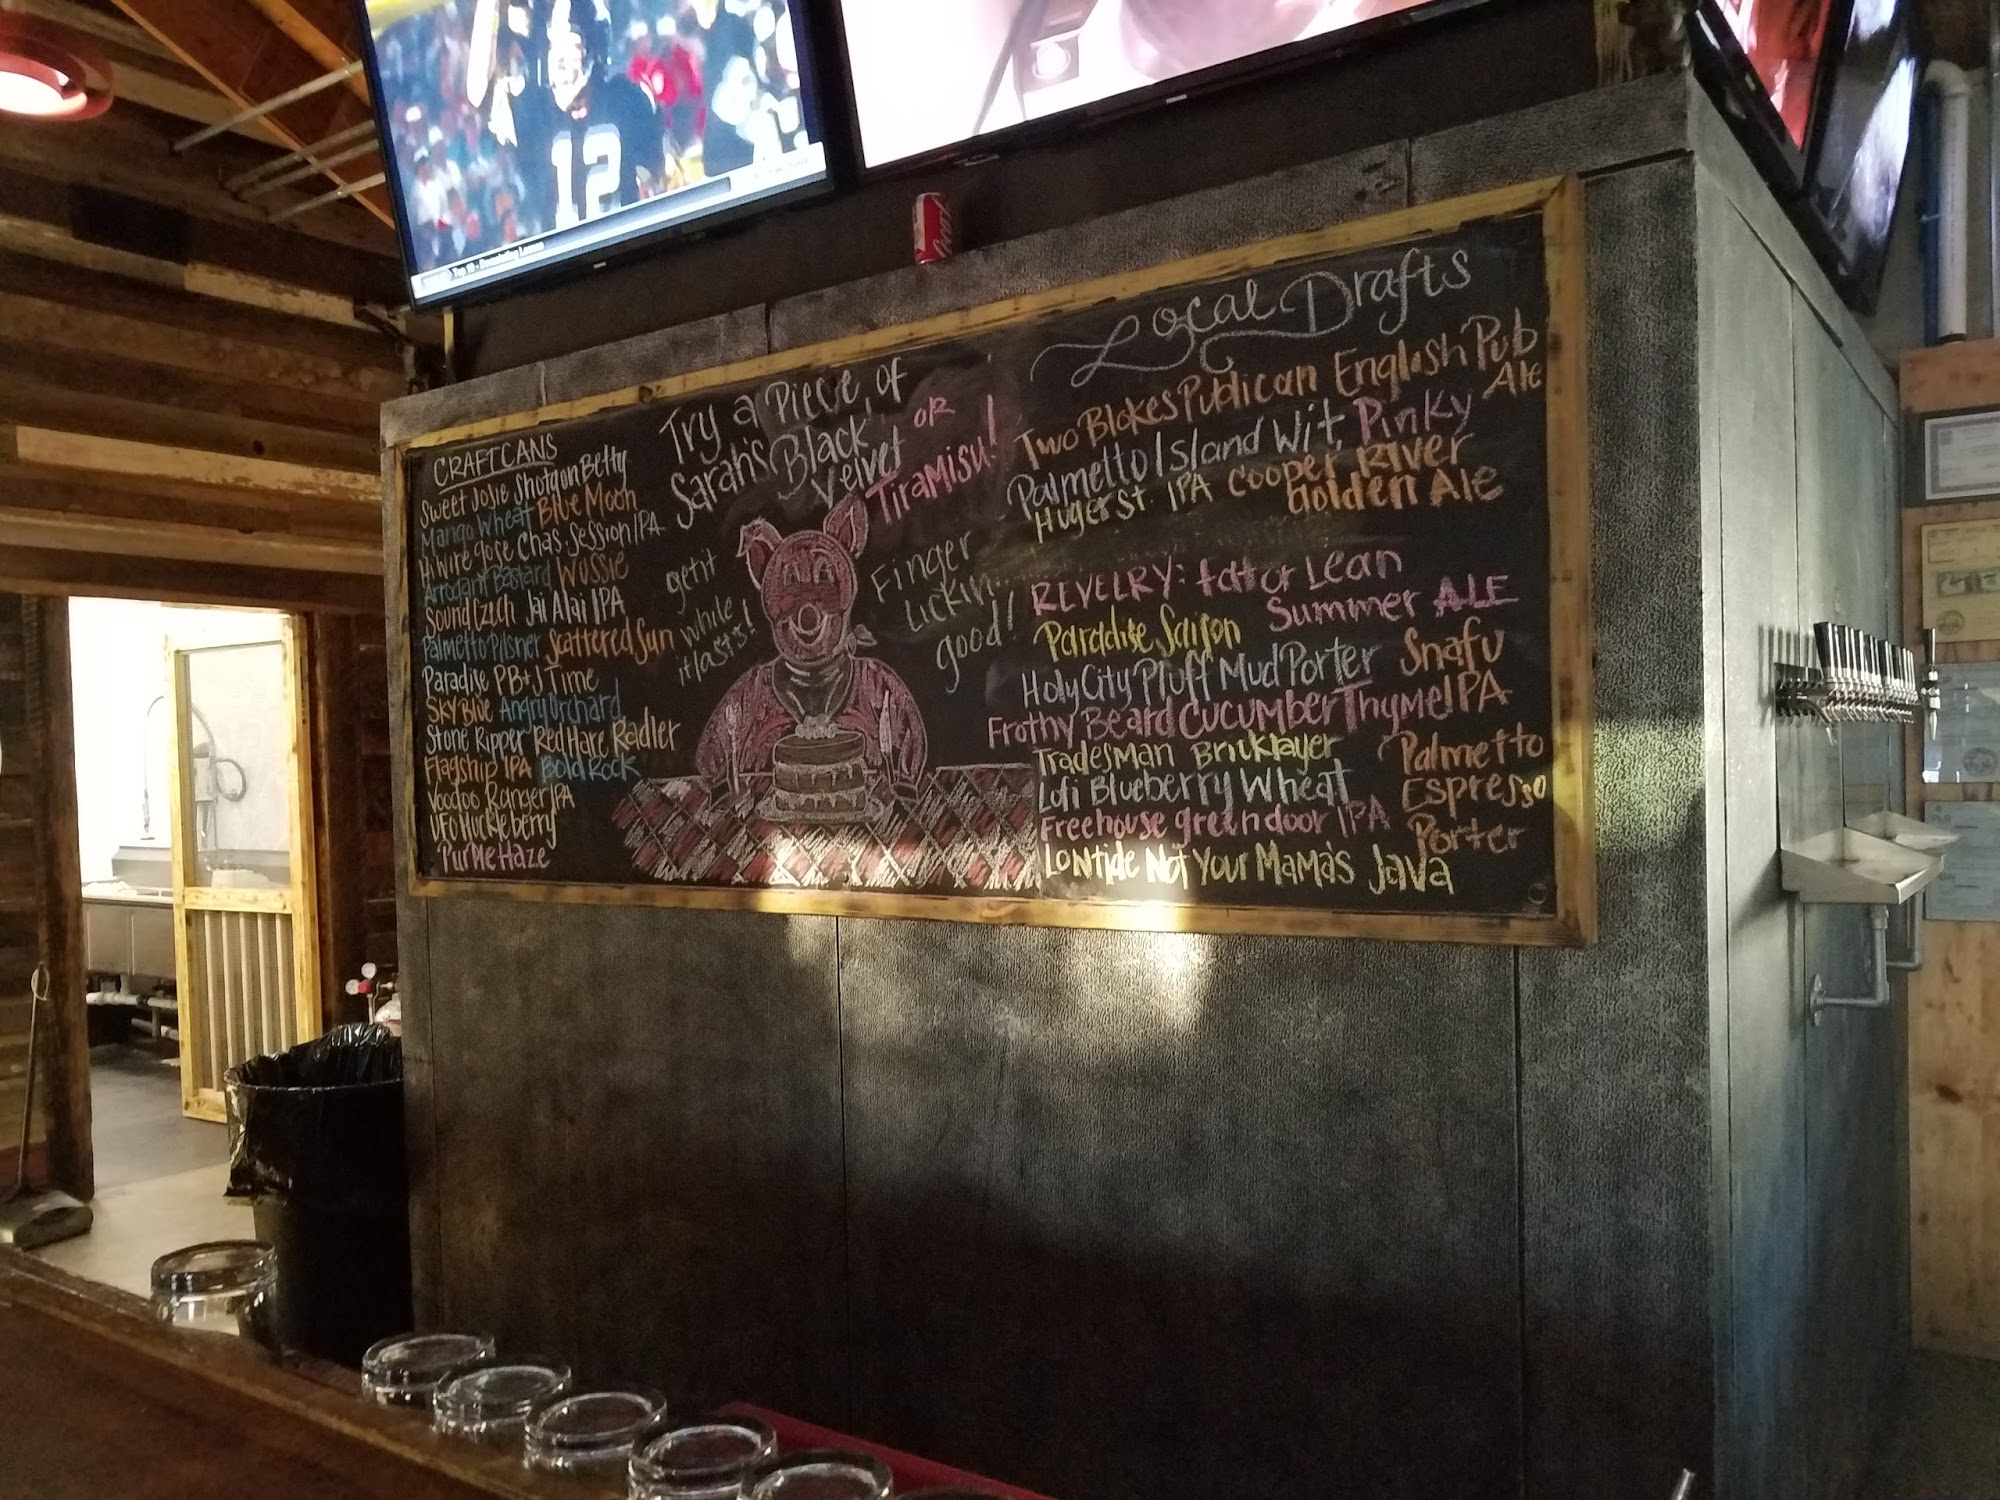 12
CRAFTCANS
Sweet Josie Shotgun Betty
Mango Wheat Blue Moon
HiWire gose Chas Session IPA
Arrogant Bastard Wussie
Sound Czech Jai Alai IPA
Palmetto Pilsner Scattered Sun
Paradise PB+J Time
Sky Blue Angry Orchard
Stone Ripper Red Hare Radler
Flagship IPA Bold Rock
Voodoo Ranger IPA
UFO Huckleberry
Purple Haze
Try a Piece of
Sarah's Black
Velvet OR
Tiramisu!
get it
while
it lasts!
Finger
Lickin...
good!
Local Drafts
Two Blokes Publican English Pub
Ale
Palmetto Island Wit, Pinky
Huger St. IPA Cooper River
Golden Ale
REVELRY: fat or Lean
Summer ALE
Paradise Saison
Holy City Pluff Mud Porter Snafu
Frothy Beard Cucumber Thyme IPA
Tradesman Bricklayer
Lofi Blueberry Wheat
Freehouse green door IPA
Palmetto
Espresso
Porter
LowTide Not Your Mama's Java